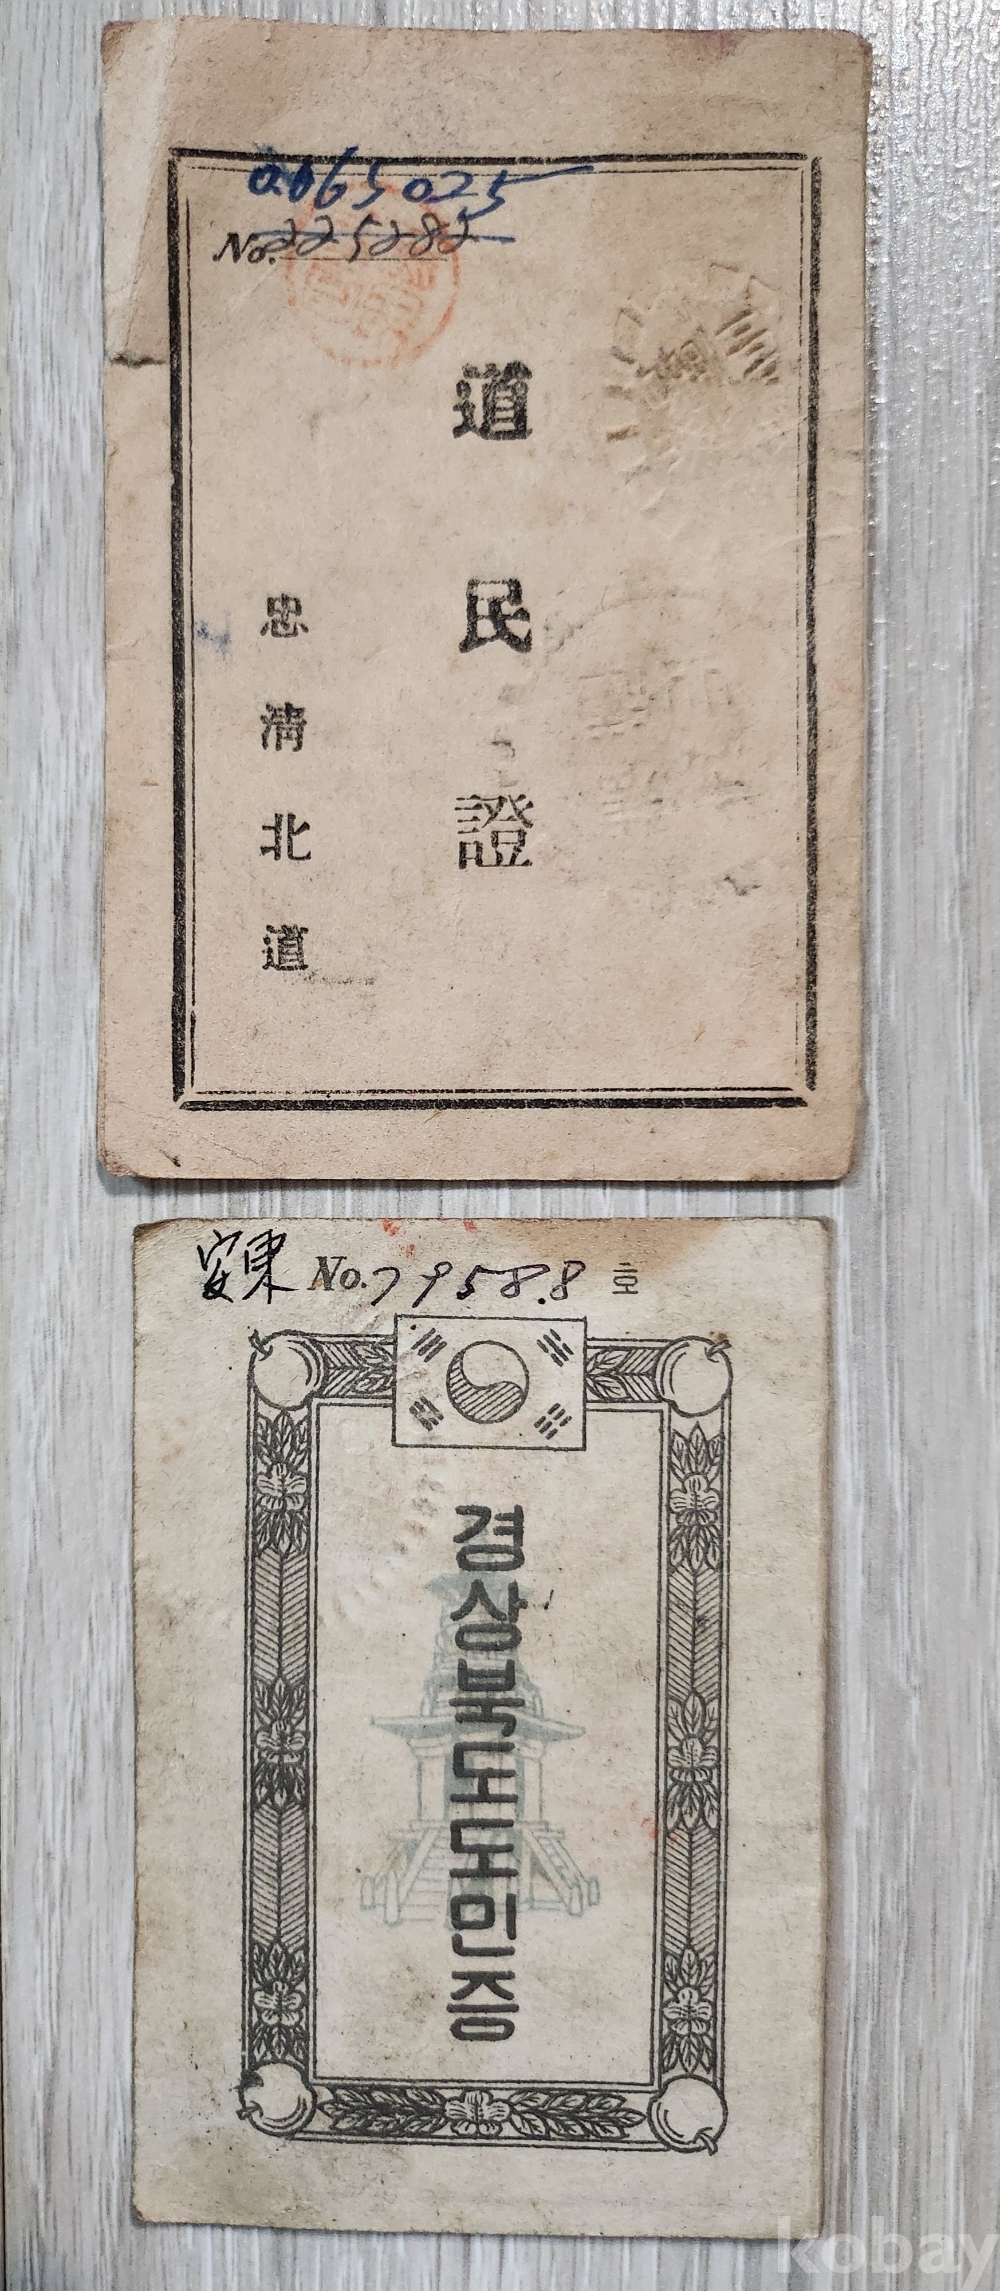 0065025
No. 225282
道民證
忠淸北道
安東 No. 79588 호
경상북도도민증
kobay